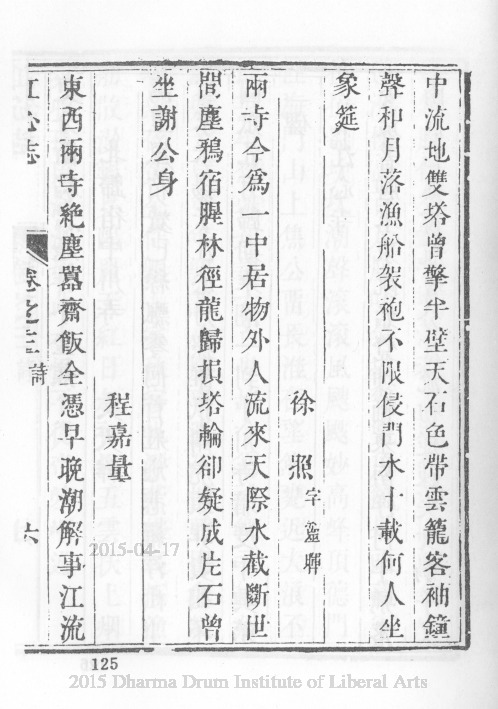 中流地雙塔曾擎半壁天石色帶雲籠客袖鐘
聲和月落漁船袈袍不限侵門水十載何人坐
象筵
徐照字靈暉
兩寺今為一中居物外人流來天際水截斷世
間塵鴉宿腥林徑龍歸損塔輪卻疑成片石曾
坐謝公身
程嘉量
東西兩寺絶塵囂齋飯全憑早晚潮解事江流
江心志
卷之三 詩
六
125
2015-04-17
2015 Dharma Drum Institute of Liberal Arts